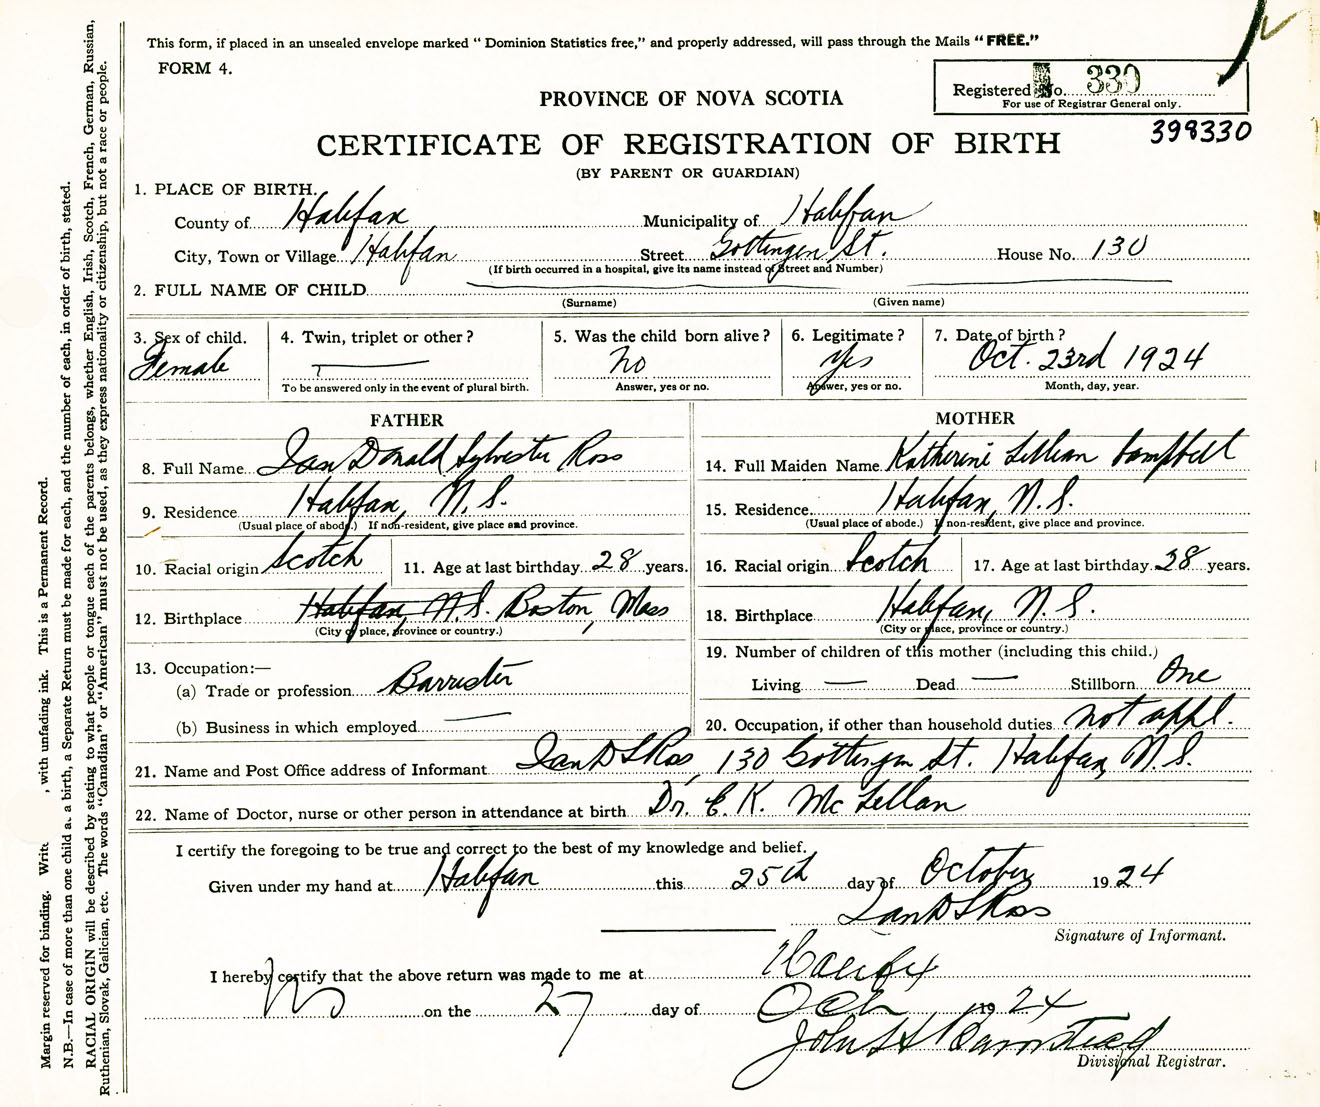 This form, if placed in an unsealed envelope marked " Dominion Statistics free," and properly addressed, will pass through the Mails " FREE."
FORM 4.
Registered No. 330
For use of Registrar General only.
PROVINCE OF NOVA SCOTIA
398330
CERTIFICATE OF REGISTRATION OF BIRTH
(BY PARENT OR GUARDIAN)
1. PLACE OF BIRTH.
County of Halifax Municipality of Halifax
City, Town or Village Halifax Street Gottingen St. House No. 130
(If birth occurred in a hospital, give its name instead of Street and Number)
2. FULL NAME OF CHILD
(Surname) (Given name)
3. Sex of child. 4. Twin, triplet or other? 5. Was the child born alive? 6. Legitimate? 7. Date of birth?
Female — no Yes Oct. 23rd 1924
To be answered only in the event of plural birth. Answer, yes or no. Answer, yes or no. Month, day, year.
FATHER MOTHER
8. Full Name Ian Donald Sylvester Ross 14. Full Maiden Name Katherine Lillian Campbell
9. Residence Halifax, N.S. 15. Residence Halifax, N.S.
(Usual place of abode.) If non-resident, give place and province. (Usual place of abode.) If non-resident, give place and province.
10. Racial origin Scotch 11. Age at last birthday 28 years. 16. Racial origin Scotch 17. Age at last birthday 28 years.
12. Birthplace Halifax, N.S. Boston, Mass 18. Birthplace Halifax, N.S.
(City or place, province or country.) (City or place, province or country.)
13. Occupation:— 19. Number of children of this mother (including this child.)
(a) Trade or profession Barrister Living — Dead — Stillborn One
(b) Business in which employed — 20. Occupation, if other than household duties not appl.
21. Name and Post Office address of Informant Ian D S Ross, 130 Gottingen St. Halifax, N.S.
22. Name of Doctor, nurse or other person in attendance at birth Dr. E. K. McLellan
I certify the foregoing to be true and correct to the best of my knowledge and belief.
Given under my hand at Halifax this 25th day of October 1924
Ian D S Ross
Signature of Informant.
I hereby certify that the above return was made to me at Halifax
NS on the 27 day of Oct 1924
John H Barnstead
Divisional Registrar.
Margin reserved for binding. Write , with unfading ink. This is a Permanent Record.
N.B.—In case of more than one child a. a birth, a Separate Return must be made for each, and the number of each, in order of birth, stated.
RACIAL ORIGIN will be described by stating to what people or tongue each of the parents belongs, whether English, Irish, Scotch, French, German, Russian,
Ruthenian, Slovak, Galician, etc. The words "Canadian" or "American" must not be used, as they express nationality or citizenship, but not a race or people.